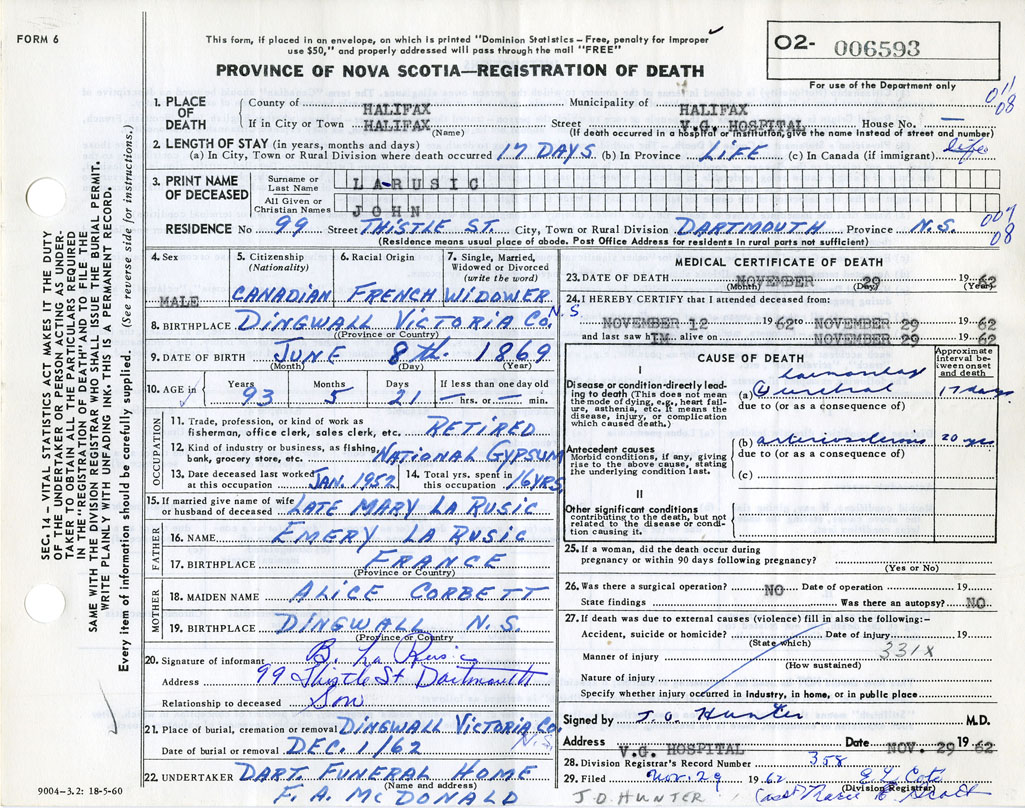 FORM 6
This form, if placed in an envelope, on which is printed "Dominion Statistics – Free, penalty for improper
use $50," and properly addressed will pass through the mail "FREE"
PROVINCE OF NOVA SCOTIA—REGISTRATION OF DEATH
02- 006593
For use of the Department only
011
08
1. PLACE OF DEATH
County of HALIFAX Municipality of HALIFAX
If in City or Town HALIFAX (Name) Street V.G. HOSPITAL House No. —
(If death occurred in a hospital or institution, give the name instead of street and number)
2. LENGTH OF STAY (in years, months and days)
(a) In City, Town or Rural Division where death occurred 17 DAYS (b) In Province LIFE (c) In Canada (if immigrant) life
3. PRINT NAME OF DECEASED
Surname or Last Name LA-RUSIC
All Given or Christian Names JOHN
RESIDENCE No 99 Street THISTLE ST. City, Town or Rural Division DARTMOUTH Province N.S.
(Residence means usual place of abode. Post Office Address for residents in rural parts not sufficient)
007
08
4. Sex MALE
5. Citizenship (Nationality) CANADIAN
6. Racial Origin FRENCH
7. Single, Married, Widowed or Divorced (write the word) WIDOWER
8. BIRTHPLACE DINGWALL VICTORIA CO. N.S.
(Province or Country)
9. DATE OF BIRTH JUNE 8th. 1869
(Month) (Day) (Year)
10. AGE in Years 93 Months 5 Days 21 If less than one day old — hrs. or — min.
OCCUPATION
11. Trade, profession, or kind of work as fisherman, office clerk, sales clerk, etc. RETIRED
12. Kind of industry or business, as fishing, bank, grocery store, etc. NATIONAL GYPSUM
13. Date deceased last worked at this occupation JAN. 1952
14. Total yrs. spent in this occupation 16 YRS.
15. If married give name of wife or husband of deceased LATE MARY LA RUSIC
FATHER
16. NAME EMERY LA RUSIC
17. BIRTHPLACE FRANCE
(Province or Country)
MOTHER
18. MAIDEN NAME ALICE CORBETT
19. BIRTHPLACE DINGWALL N.S.
(Province or Country
20. Signature of informant B. La Rusic
Address 99 Thistle St Dartmouth
Relationship to deceased Son
21. Place of burial, cremation or removal DINGWALL VICTORIA CO. N.S.
Date of burial or removal DEC. 1/62
22. UNDERTAKER DART. FUNERAL HOME
(Name and address)
F. A. McDONALD
9004–3.2: 18-5-60
MEDICAL CERTIFICATE OF DEATH
23. DATE OF DEATH NOVEMBER 29 1962
(Month) (Day) (Year)
24. I HEREBY CERTIFY that I attended deceased from:
NOVEMBER 12 1962 to NOVEMBER 29 1962
and last saw hIM alive on NOVEMBER 29 1962
CAUSE OF DEATH
Approximate interval between onset and death
I
Disease or condition-directly leading to death (This does not mean the mode of dying, e.g., heart failure, asthenia, etc. It means the disease, injury, or complication which caused death.)
haemorrhage
(a) cerebral 17 days
due to (or as a consequence of)
Antecedent causes
Morbid conditions, if any, giving rise to the above cause, stating the underlying condition last.
(b) arteriosclerosis 20 yrs
due to (or as a consequence of)
(c)
II
Other significant conditions
contributing to the death, but not related to the disease or condition causing it.
25. If a woman, did the death occur during
pregnancy or within 90 days following pregnancy?
(Yes or No)
26. Was there a surgical operation? NO Date of operation 19
State findings Was there an autopsy? NO
27. If death was due to external causes (violence) fill in also the following:–
Accident, suicide or homicide? Date of injury 19
(State which)
Manner of injury 331X
(How sustained)
Nature of injury
Specify whether injury occurred in Industry, in home, or in public place
Signed by J. D. Hunter M.D.
Address V.G. HOSPITAL Date NOV. 29 1962
28. Division Registrar's Record Number 358
29. Filed Nov. 29 1962
(Division Registrar)
J. D. HUNTER
SEC. 14 – VITAL STATISTICS ACT MAKES IT THE DUTY
OF THE UNDERTAKER OR PERSON ACTING AS UNDER-
TAKER TO OBTAIN ALL THE PARTICULARS REQUIRED
IN THE "REGISTRATION OF DEATH" AND TO FILE THE
SAME WITH THE DIVISION REGISTRAR WHO SHALL ISSUE THE BURIAL PERMIT.
WRITE PLAINLY WITH UNFADING INK. THIS IS A PERMANENT RECORD.
Every item of information should be carefully supplied. (See reverse side for instructions.)